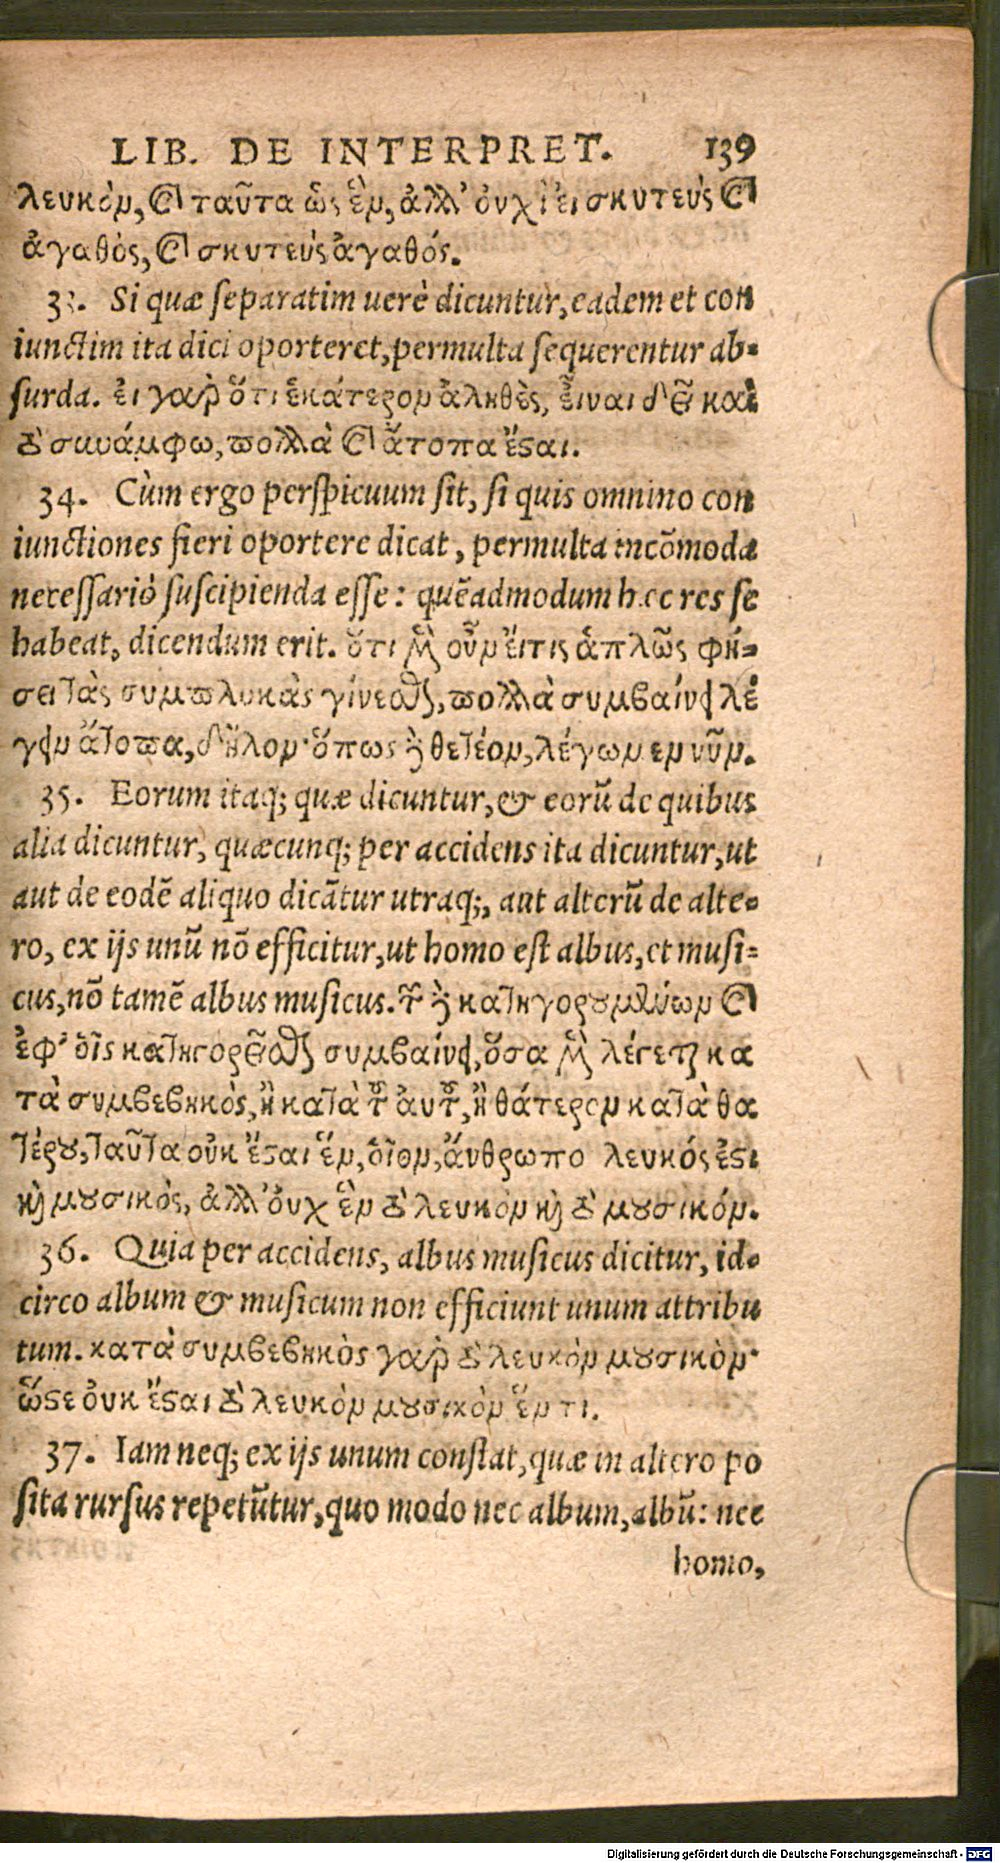 LIB. DE INTERPRET. 139
λευκὸν, καὶ ταῦτα ὡς ἓν, ἀλλ' ὀυχὶ ἐι σκυτεὺς καὶ
ἀγαθὸς, καὶ σκυτεὺς ἀγαθός.
33. Si quæ separatim uerè dicuntur, eadem et con
iunctim ita dici oporteret, permulta sequerentur ab-
surda. ἐι γαρ ὅτι ἑκάτερον ἀληθὲς, εἶναι δεῖ καὶ
τὸ συνάμφω, πολλὰ καὶ ἄτοπα ἔσται.
34. Cùm ergo perspicuum sit, si quis omnino con
iunctiones fieri oportere dicat, permulta incōmoda
necessariò suscipienda esse: quēadmodum hæc res se
habeat, dicendum erit. ὅτι μὲν οὖν ἔιτις ἁπλῶς φή-
σει τὰς συμπλοκὰς γίνεσθαι, πολλὰ συμβαίνει λέ
γειν ἄτοπα, δῆλον· ὅπως δὲ θετέον, λέγωμεν νῦν.
35. Eorum itaq; quæ dicuntur, & eorū de quibus
alia dicuntur, quæcunq; per accidens ita dicuntur, ut
aut de eodē aliquo dicātur utraq;, aut alterū de alte-
ro, ex ijs unū nō efficitur, ut homo est albus, et musi-
cus, nō tamē albus musicus. τῶν δὲ κατηγορουμένων καὶ
ἐφ' οἷς κατηγορεῖσθαι συμβαίνει, ὅσα μὲν λέγεται κα
τὰ συμβεβηκὸς, ἢ κατὰ τοῦ ἀυτοῦ, ἢ θάτερον κατὰ θα
τέρου, ταῦτα οὐκ ἔσται ἕν, οἷον, ἄνθρωπο λευκός ἐστι
καὶ μουσικός, ἀλλ' ὀυχ ἓν τὸ λευκὸν καὶ τὸ μουσικόν.
36. Quia per accidens, albus musicus dicitur, id-
circo album & musicum non efficiunt unum attribu
tum. κατὰ συμβεβηκὸς γαρ τὸ λευκὸν μουσικὸν·
ὥστε ὀυκ ἔσται τὸ λευκὸν μουσικὸν ἕν τι.
37. Iam neq; ex ijs unum constat, quæ in altero po
sita rursus repetūtur, quo modo nec album, albū: nec
homo,
Digitalisierung gefördert durch die Deutsche Forschungsgemeinschaft - DFG